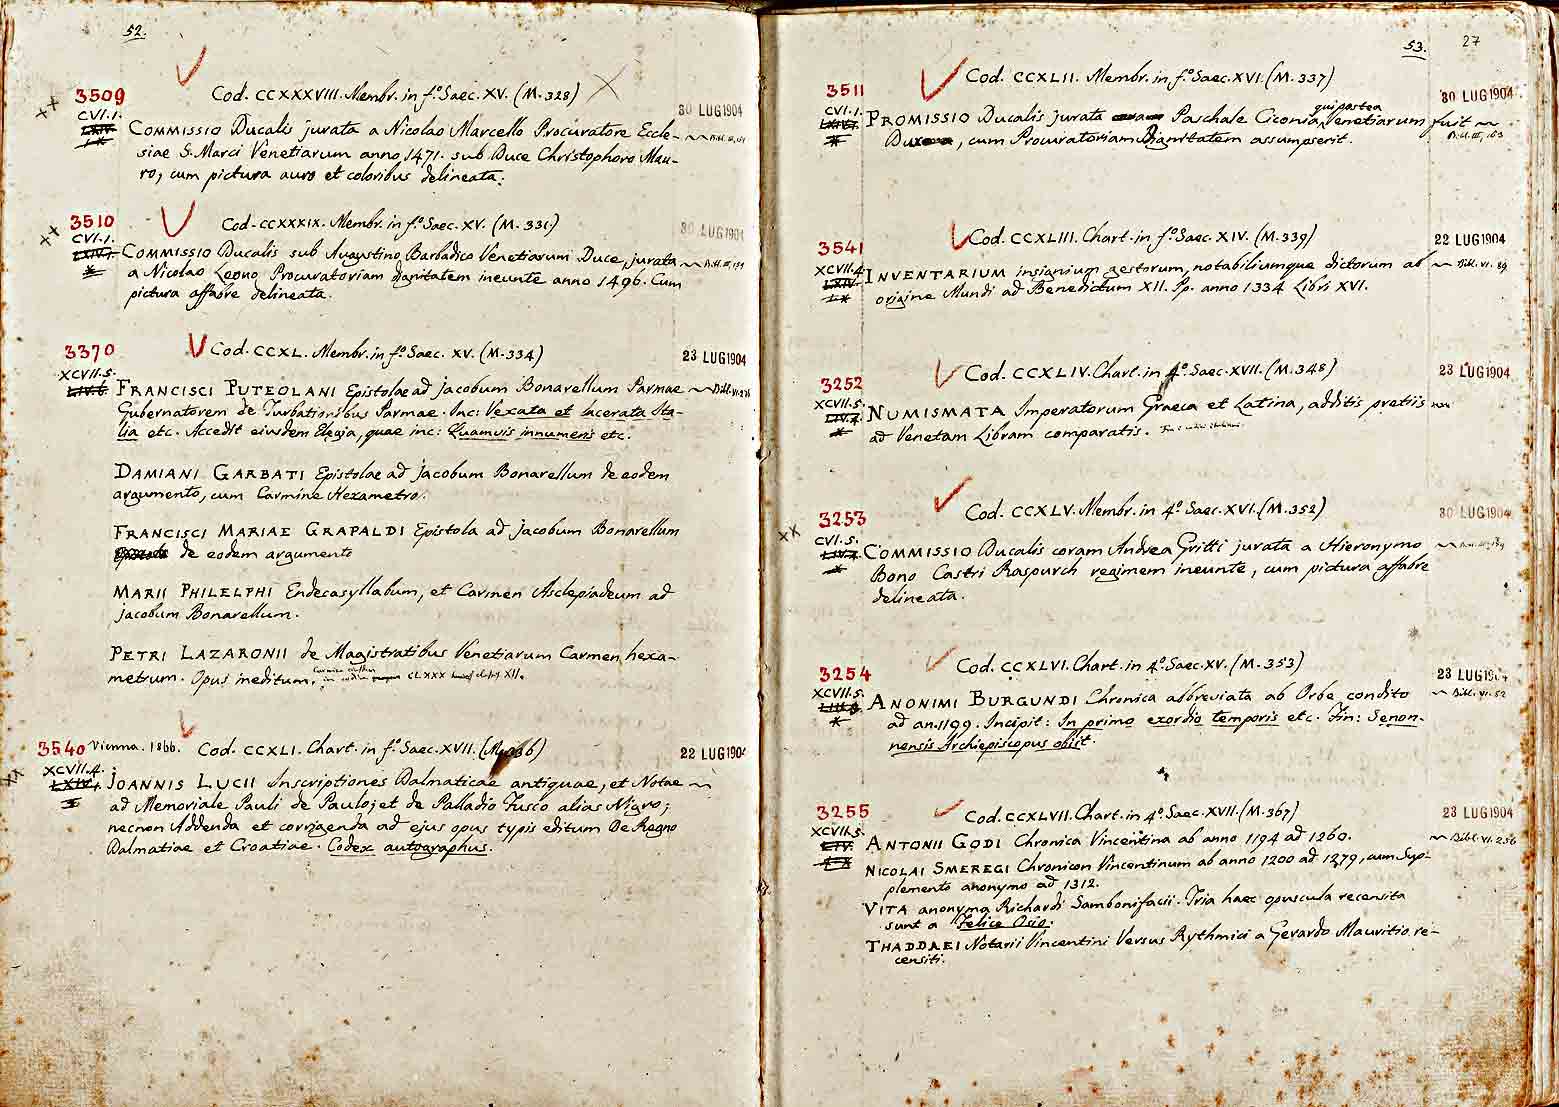 52.
3509 Cod. CCXXXVIII. Membr. in f.º Saec. XV. (M. 328)
30 LUG 1904
CVI.1. COMMISSIO Ducalis jurata a Nicolao Marcello Procuratore Eccle-
siae S. Marci Venetiarum anno 1471. sub Duce Christophoro Mau-
ro, cum pictura auro et coloribus delineata.
3510 Cod. CCXXXIX. Membr. in f.º Saec. XV. (M. 331)
30 LUG 1904
CVI.1. COMMISSIO Ducalis sub Augustino Barbadico Venetiarum Duce, jurata
a Nicolao Leono Procuratoriam dignitatem ineunte anno 1496. Cum
pictura affabre delineata.
3370 Cod. CCXL. Membr. in f.º Saec. XV. (M. 334)
23 LUG 1904
XCVII.5. FRANCISCI PUTEOLANI Epistolae ad jacobum Bonarellum Parmae
Gubernatorem de Turbationibus Parmae. Inc: Vexata et lacerata Ita-
lia etc. Accedit eiusdem Elegia, quae inc: Quamvis innumeris etc.
DAMIANI GARBATI Epistolae ad jacobum Bonarellum de eodem
argumento, cum Carmine Hexametro.
FRANCISCI MARIAE GRAPALDI Epistola ad jacobum Bonarellum
de eodem argumento
MARII PHILELPHI Endecasyllabum, et Carmen Asclepiadeum ad
jacobum Bonarellum.
PETRI LAZARONII de Magistratibus Venetiarum Carmen hexa-
metrum. Opus ineditum.
3540 Vienna. 1866. Cod. CCXLI. Chart. in f.º Saec. XVII. (M. 336)
22 LUG 1904
XCVII.4. JOANNIS LUCII Inscriptiones Dalmaticae antiquae, et Notae
ad Memoriale Pauli de Paulo, et de Palladio Fusco alias Nigro;
necnon Addenda et corrigenda ad ejus opus typis editum De Regno
Dalmatiae et Croatiae. Codex autographus.
53. 27
3511 Cod. CCXLII. Membr. in f.º Saec. XVI. (M. 337)
30 LUG 1904
qui postea
CVI.1. PROMISSIO Ducalis jurata Paschale Ciconia, Venetiarum fuit
Dux, cum Procuratoriam Dignitatem assumpserit.
3541 Cod. CCXLIII. Chart. in f.º Saec. XIV. (M. 339)
22 LUG 1904
XCVII.4. INVENTARIUM insignium gestorum, notabiliumque dictorum ab Bibl. VI. 89
origine Mundi ad Benedictum XII. Pp. anno 1334 Libri XVI.
3252 Cod. CCXLIV. Chart. in 4.º Saec. XVII. (M. 348)
23 LUG 1904
XCVII.5. NUMISMATA Imperatorum Graeca et Latina, additis pretiis
ad Venetam Libram comparatis.
3253 Cod. CCXLV. Membr. in 4.º Saec. XVI. (M. 352)
30 LUG 1904
CVI.5. COMMISSIO Ducalis coram Andrea Gritti jurata a Hieronymo
Bono Castri Raspurch regimem ineunte, cum pictura affabre
delineata.
3254 Cod. CCXLVI. Chart. in 4.º Saec. XV. (M. 353)
23 LUG 1904
XCVII.5. ANONIMI BURGUNDI Chronica abbreviata ab Orbe condito Bibl. VI. 52
ad an. 1199. Incipit: In primo exordio temporis etc. Fin: Senon-
nensis Archiepiscopus obiit.
3255 Cod. CCXLVII. Chart. in 4.º Saec. XVII. (M. 367)
23 LUG 1904
XCVII.5. ANTONII GODI Chronica Vincentina ab anno 1194 ad 1260. Bibl. VI. 256
NICOLAI SMEREGI Chronicon Vincentinum ab anno 1200 ad 1279, cum Sup-
plemento anonymo ad 1312.
VITA anonyma Richardi Sambonifacii. Tria haec opuscula recensita
sunt a Felice Osio.
THADDAEI Notarii Vincentini Versus Rythmici a Gerardo Mauritio re-
censiti.